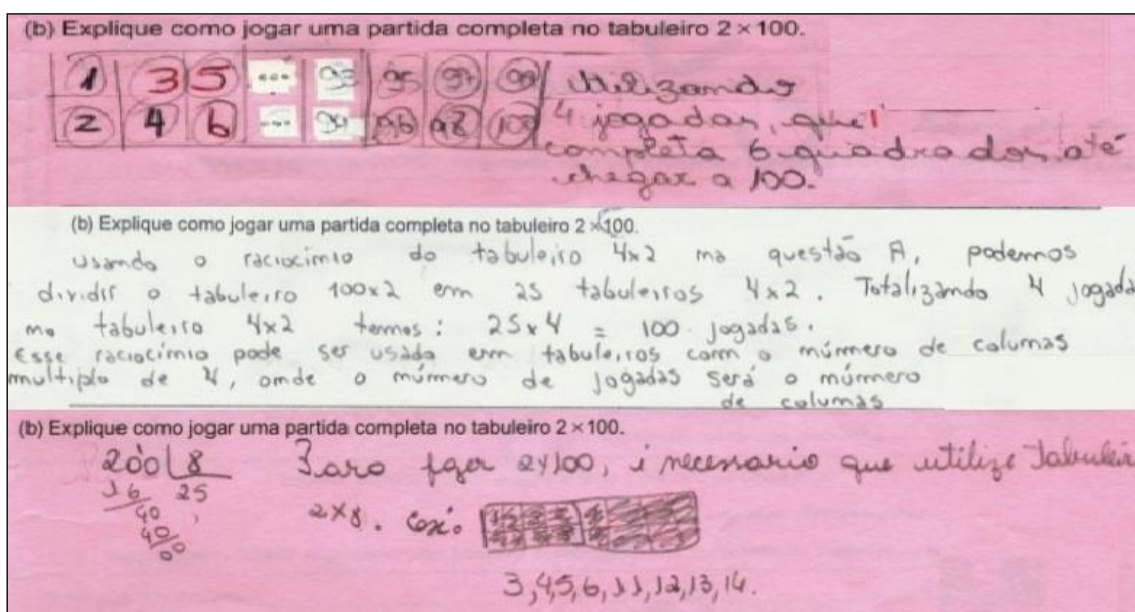 (b) Explique como jogar uma partida completa no tabuleiro 2 × 100.
1 3 5 ... 93 95 97 99
2 4 6 ... 94 96 98 100
Utilizando
4 jogadas, que
completa 6 quadrados até
chegar a 100.
(b) Explique como jogar uma partida completa no tabuleiro 2 × 100.
Usando o raciocínio do tabuleiro 4x2 na questão A, podemos
dividir o tabuleiro 100x2 em 25 tabuleiros 4x2. Totalizando 4 jogada
no tabuleiro 4x2 temos: 25x4 = 100 jogadas.
Esse raciocínio pode ser usado em tabuleiros com o número de colunas
multiplo de 4, onde o número de jogadas será o número
de colunas
(b) Explique como jogar uma partida completa no tabuleiro 2 × 100.
200 8
16 25
40
40
00
2x100, é necessario que utilize Tabuleir
2x8.
3,4,5,6,11,12,13,14.